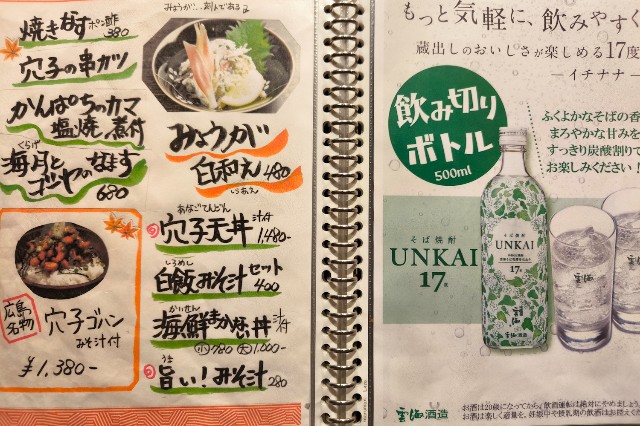 焼きなす ポン酢 380
穴子の串カツ
かんぱちのカマ
塩焼 煮付
くらげ
海月と
ゴーヤのなます
680
みょうが
白和え 480
しらあえ
広島
名物
穴子ゴハン
みそ汁付
¥1,380-
あなごてんどん
穴子天丼 汁付 1,480-
しろめし
白飯みそ汁セット 400
かいせん
海鮮まかない丼 汁付
小 780 大 1,000-
うま
旨い!みそ汁 280
もっと気軽に、飲みやすく
蔵出しのおいしさが楽しめる17度
—イチナナ—
飲み切り
ボトル
500ml
ふくよかなそばの香
まろやかな甘みを
すっきり炭酸割りで
お楽しみください!
そば焼酎
UNKAI
17度
そば焼酎
UNKAI
17
雲海
雲海酒造
お酒は20歳になってから。飲酒運転は絶対にやめましょう。
お酒は楽しく適量を。妊娠中や授乳期の飲酒はお控えくだ